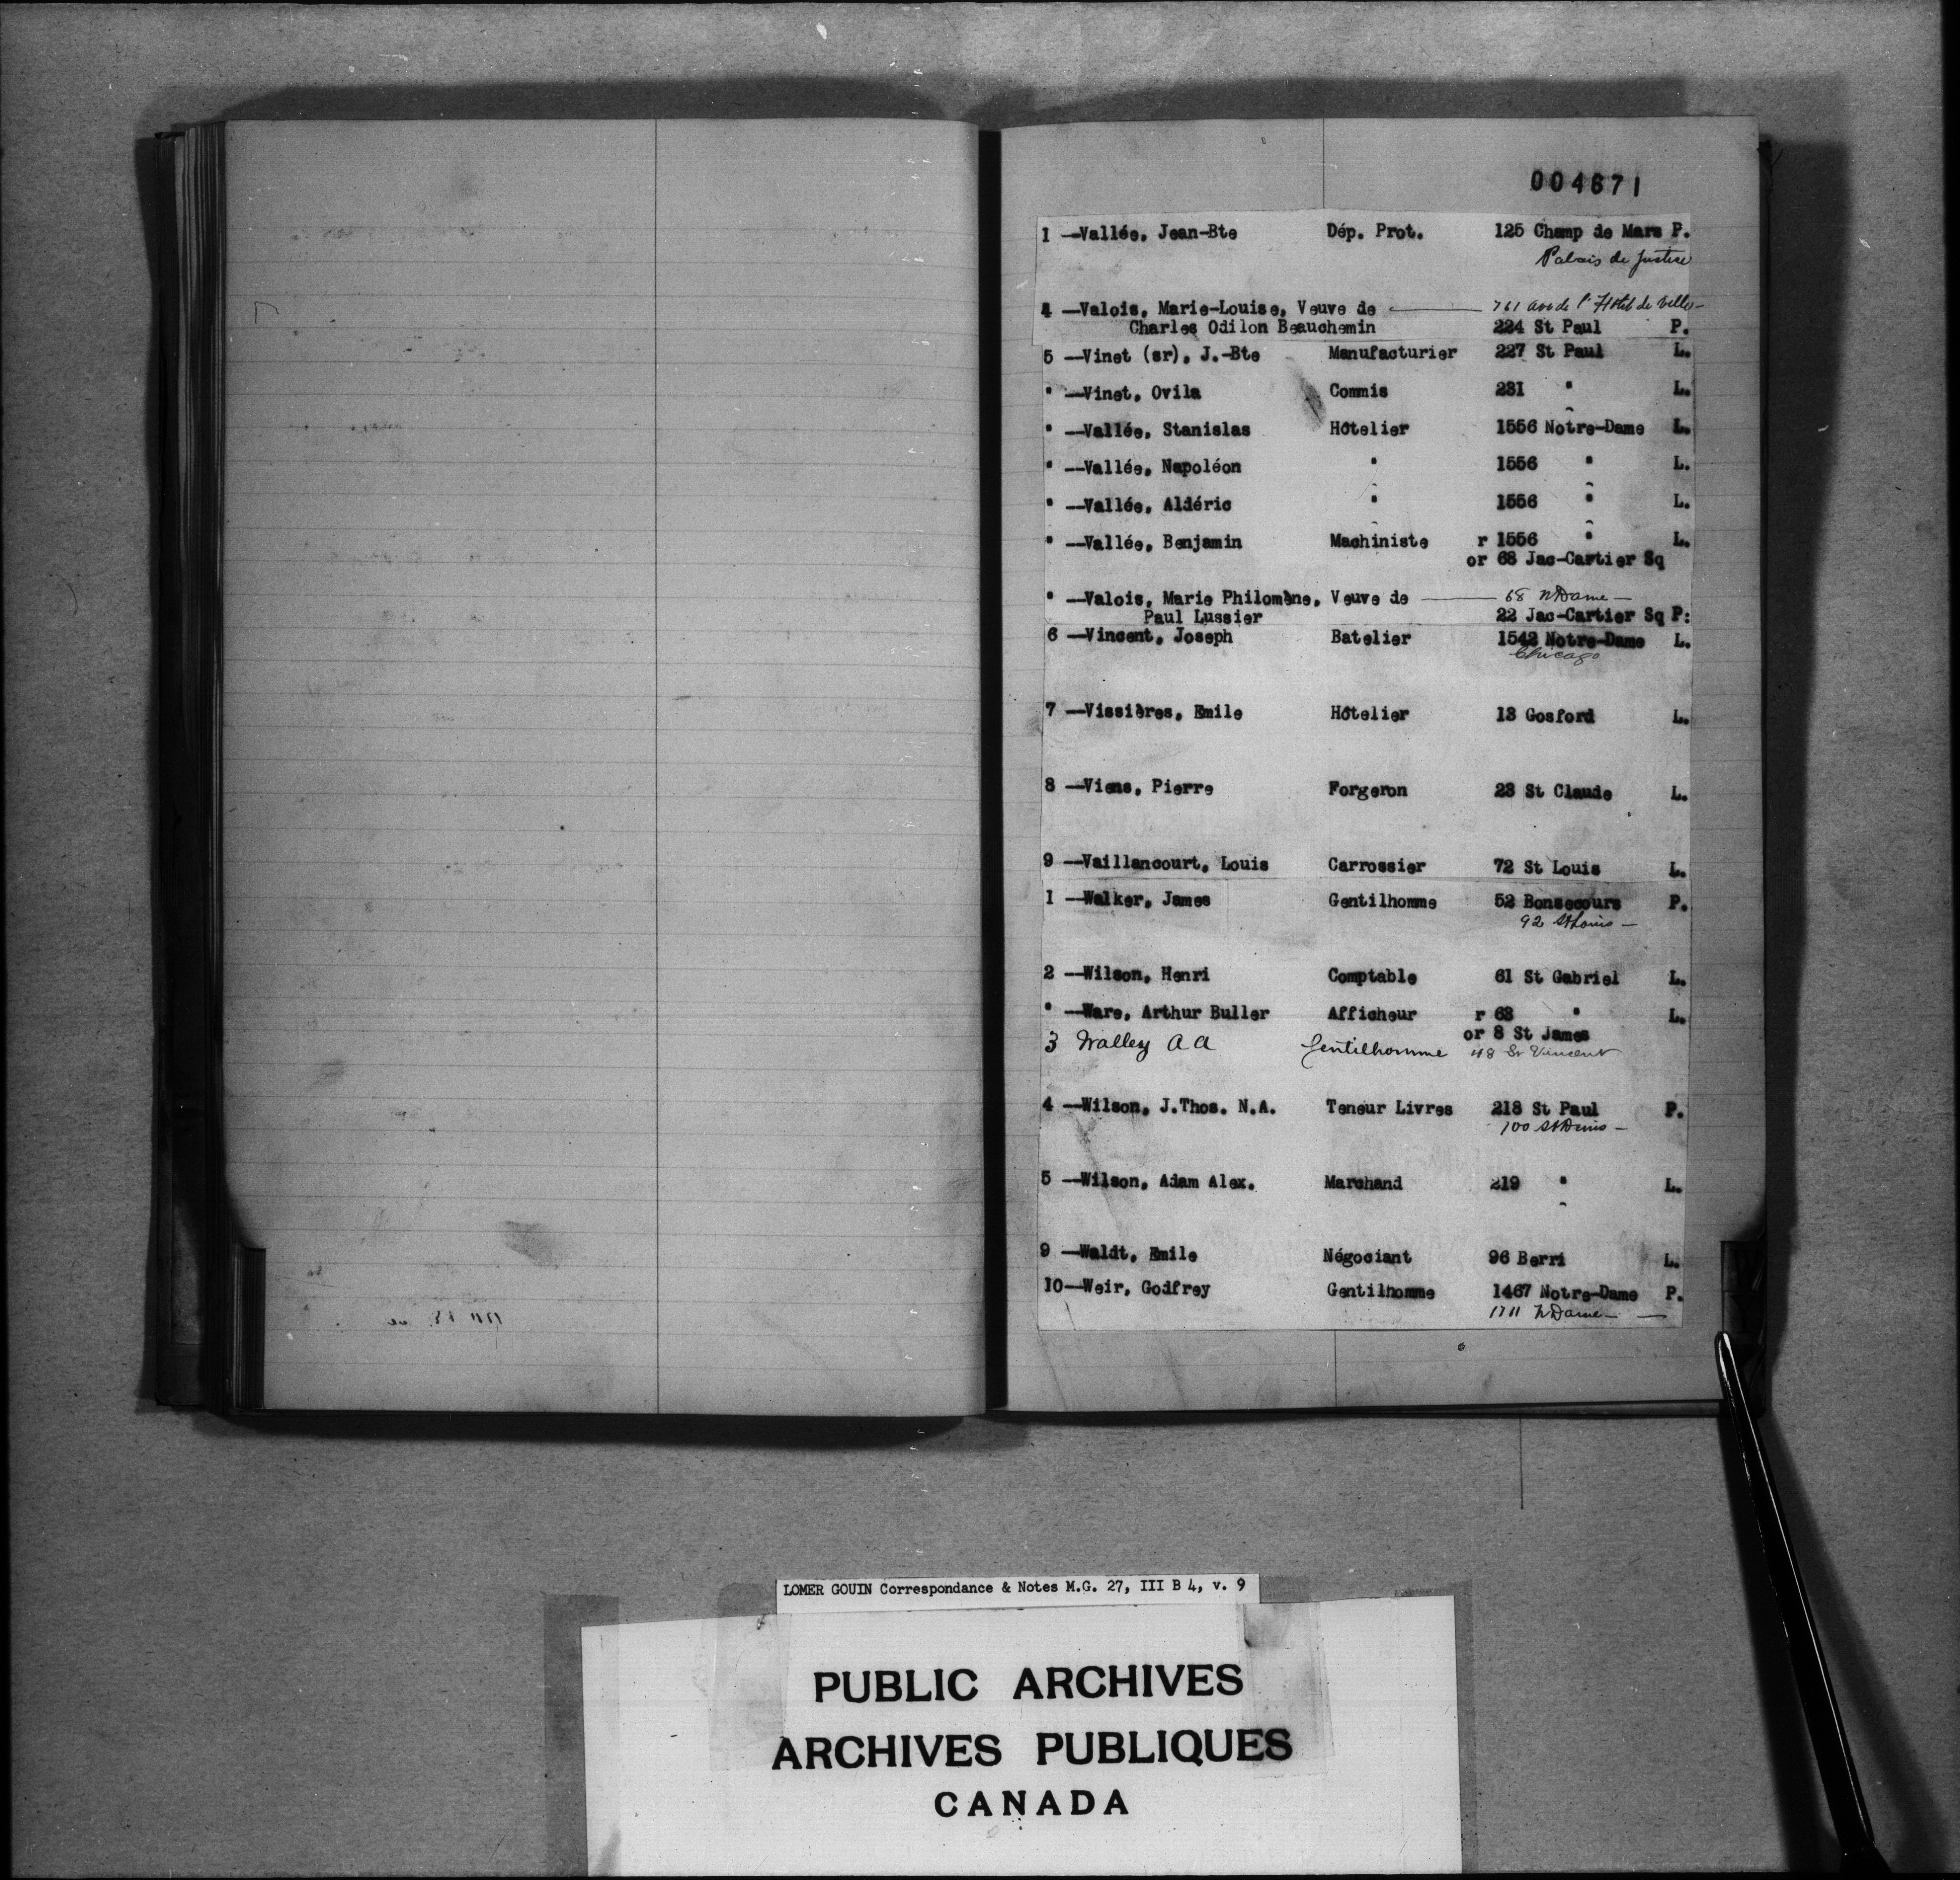 004671
1 —Vallée, Jean-Bte Dép. Prot. 125 Champ de Mars P.
Palais de Justice
4 —Valois, Marie-Louise, Veuve de 761 ave de l'Hôtel de Ville—
Charles Odilon Beauchemin 224 St Paul P.
5 —Vinet (sr), J.-Bte Manufacturier 227 St Paul L.
" —Vinet, Ovila Commis 231 " L.
" —Vallée, Stanislas Hôtelier 1556 Notre-Dame L.
" —Vallée, Napoléon " 1556 " L.
" —Vallée, Aldéric " 1556 " L.
" —Vallée, Benjamin Machiniste r 1556 " L.
or 68 Jac-Cartier Sq
" —Valois, Marie Philomène, Veuve de 68 N Dame —
Paul Lussier 22 Jac-Cartier Sq P:
6 —Vincent, Joseph Batelier 1542 Notre-Dame L.
Chicago
7 —Vissières, Emile Hôtelier 13 Gosford L.
8 —Viens, Pierre Forgeron 23 St Claude L.
9 —Vaillancourt, Louis Carrossier 72 St Louis L.
1 —Walker, James Gentilhomme 52 Bonsecours P.
92 St Louis —
2 —Wilson, Henri Comptable 61 St Gabriel L.
" —Ware, Arthur Buller Afficheur r 63 " L.
or 8 St James
3 Walley A A Gentilhomme 48 St Vincent
4 —Wilson, J.Thos. N.A. Teneur Livres 218 St Paul P.
100 St Denis —
5 —Wilson, Adam Alex. Marchand 219 " L.
9 —Waldt, Emile Négociant 96 Berri L.
10—Weir, Godfrey Gentilhomme 1467 Notre-Dame P.
1711 N Dame —
LOMER GOUIN Correspondance & Notes M.G. 27, III B 4, v. 9
PUBLIC ARCHIVES
ARCHIVES PUBLIQUES
CANADA